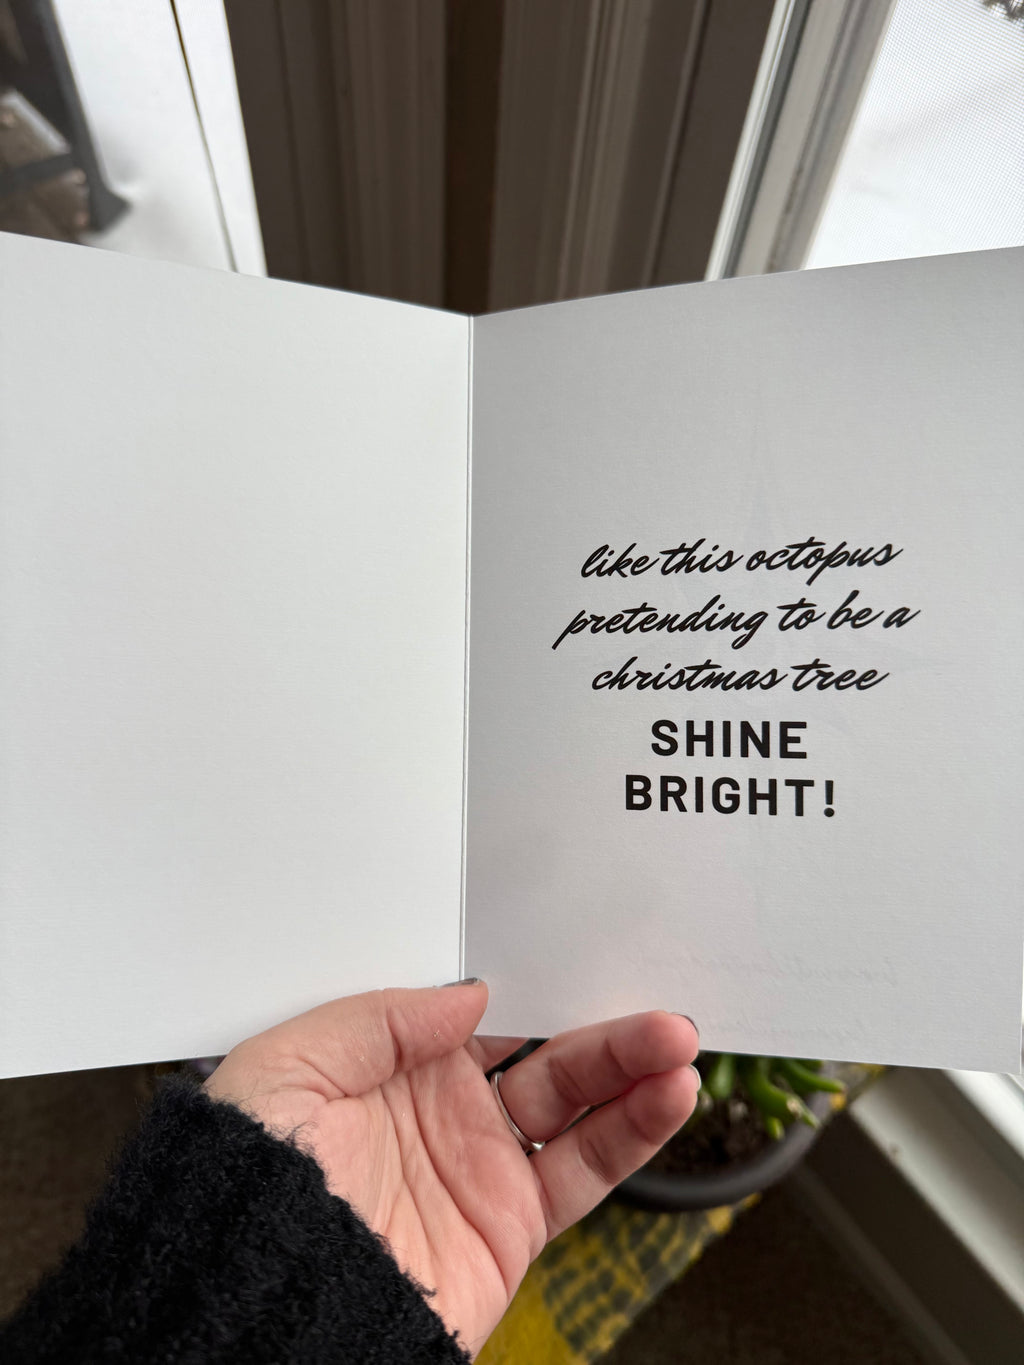 like this octopus
pretending to be a
christmas tree
SHINE
BRIGHT!